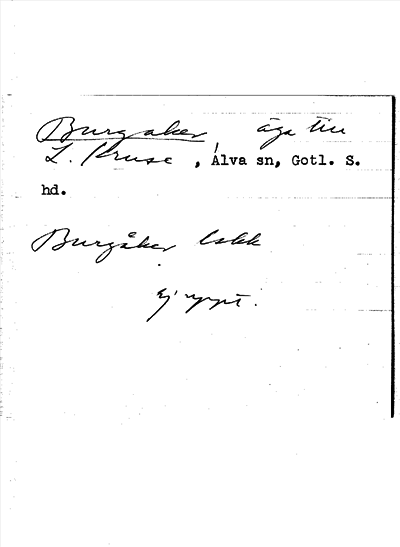 Burgaker, äga till
L. Kruse, Alva sn, Gotl. S.
hd.
Burgåker lskk
Ej uppt.